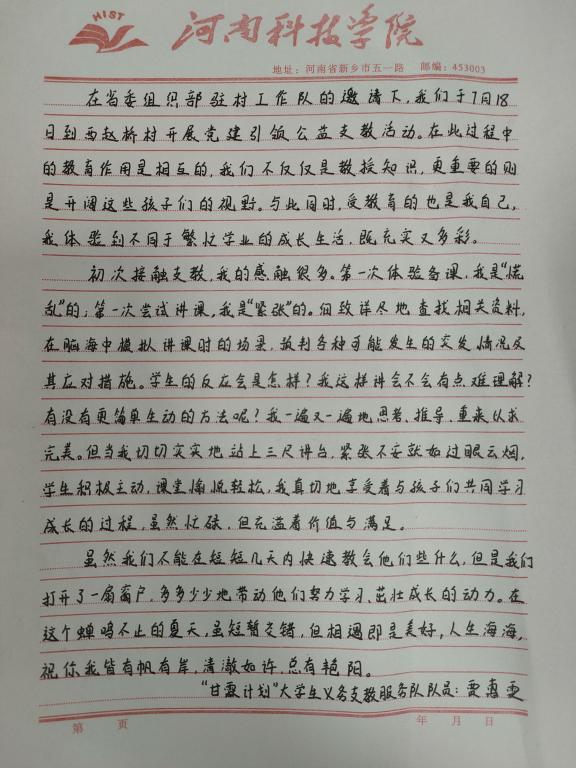 HIST
河南科技学院
地址：河南省新乡市五一路 邮编：453003
在省委组织部驻村工作队的邀请下，我们于7月18
日到西赵桥村开展党建引领公益支教活动。在此过程中
的教育作用是相互的，我们不仅仅是教授知识，更重要的则
是开阔这些孩子们的视野。与此同时，受教育的也是我自己，
我体验到不同于繁忙学业的成长生活，既充实又多彩。
初次接触支教，我的感触很多。第一次体验备课，我是“慌
乱”的；第一次尝试讲课，我是“紧张”的。细致详尽地查找相关资料，
在脑海中模拟讲课时的场景，预判各种可能发生的突发情况及
其应对措施。学生的反应会是怎样？我这样讲会不会有点难理解？
有没有更简单生动的方法呢？我一遍又一遍地思考、推导、重来以求
完美。但当我切切实实地站上三尺讲台，紧张不安就如过眼云烟，
学生积极主动，课堂愉悦轻松，我真切地享受着与孩子们共同学习
成长的过程，虽然忙碌，但充溢着价值与满足。
虽然我们不能在短短几天内快速教会他们些什么，但是我们
打开了一扇窗户，多多少少地带动他们努力学习、茁壮成长的动力。在
这个蝉鸣不止的夏天，虽短暂交错，但相遇即是美好，人生海海，
祝你我皆有帆有岸，清澈如许，总有艳阳。
“甘霖计划”大学生义务支教服务队队员：贾惠雯
第 页 年 月 日